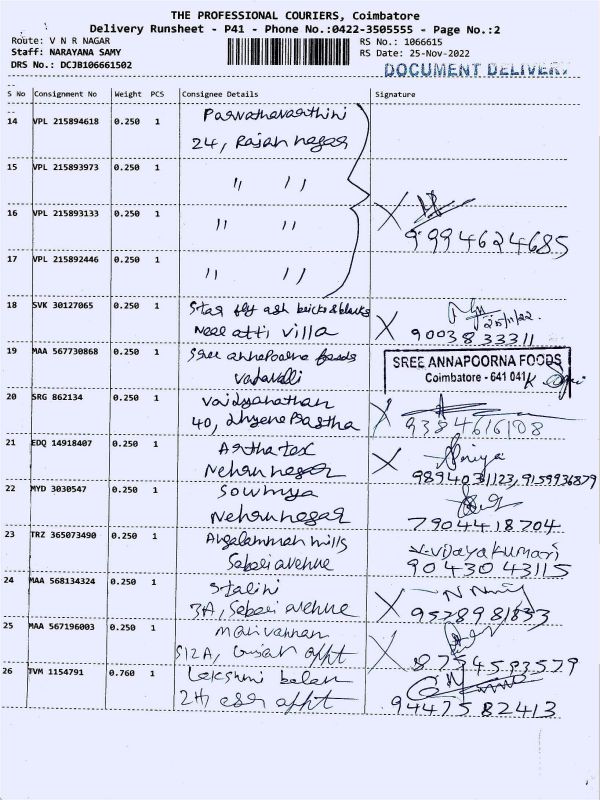 THE PROFESSIONAL COURIERS, Coimbatore
Delivery Runsheet - P41 - Phone No.:0422-3505555 - Page No.:2
Route: V N R NAGAR
RS No.: 1066615
Staff: NARAYANA SAMY
RS Date: 25-Nov-2022
DRS No.: DCJB106661502
DOCUMENT DELIVERY
S No Consignment No Weight PCS Consignee Details Signature
14 VPL 215894618 0.250 1 Parvathavarthini
24, Rajan nagar
15 VPL 215893973 0.250 1 " "
16 VPL 215893133 0.250 1 " "
X 9994624685
17 VPL 215892446 0.250 1 " "
18 SVK 30127065 0.250 1 Star fly ash bricks & blocks
25/11/22.
Near atti villa
X 9003833311
19 MAA 567730868 0.250 1 Sree annapoorna foods
SREE ANNAPOORNA FOODS
vadavalli
Coimbatore - 641 041
20 SRG 862134 0.250 1 Vaidyanathan
40,
X 9384616108
21 EDQ 14918407 0.250 1 Artha tex
X
Nehru nagar
9894031123, 9159936879
22 MYD 3030547 0.250 1 Sowmya
Nehru nagar
7904418704
23 TRZ 365073490 0.250 1 Angalamman mills
V. Vijayakumari
Sabari avenue
9043043115
24 MAA 568134324 0.250 1 Stalini
3A, Sabari avenue
X 9528981833
25 MAA 567196003 0.250 1 Manivannan
S12A, appt
X 8754583579
26 TVM 1154791 0.760 1 Lakshmi balan
2H, appt
9447582413